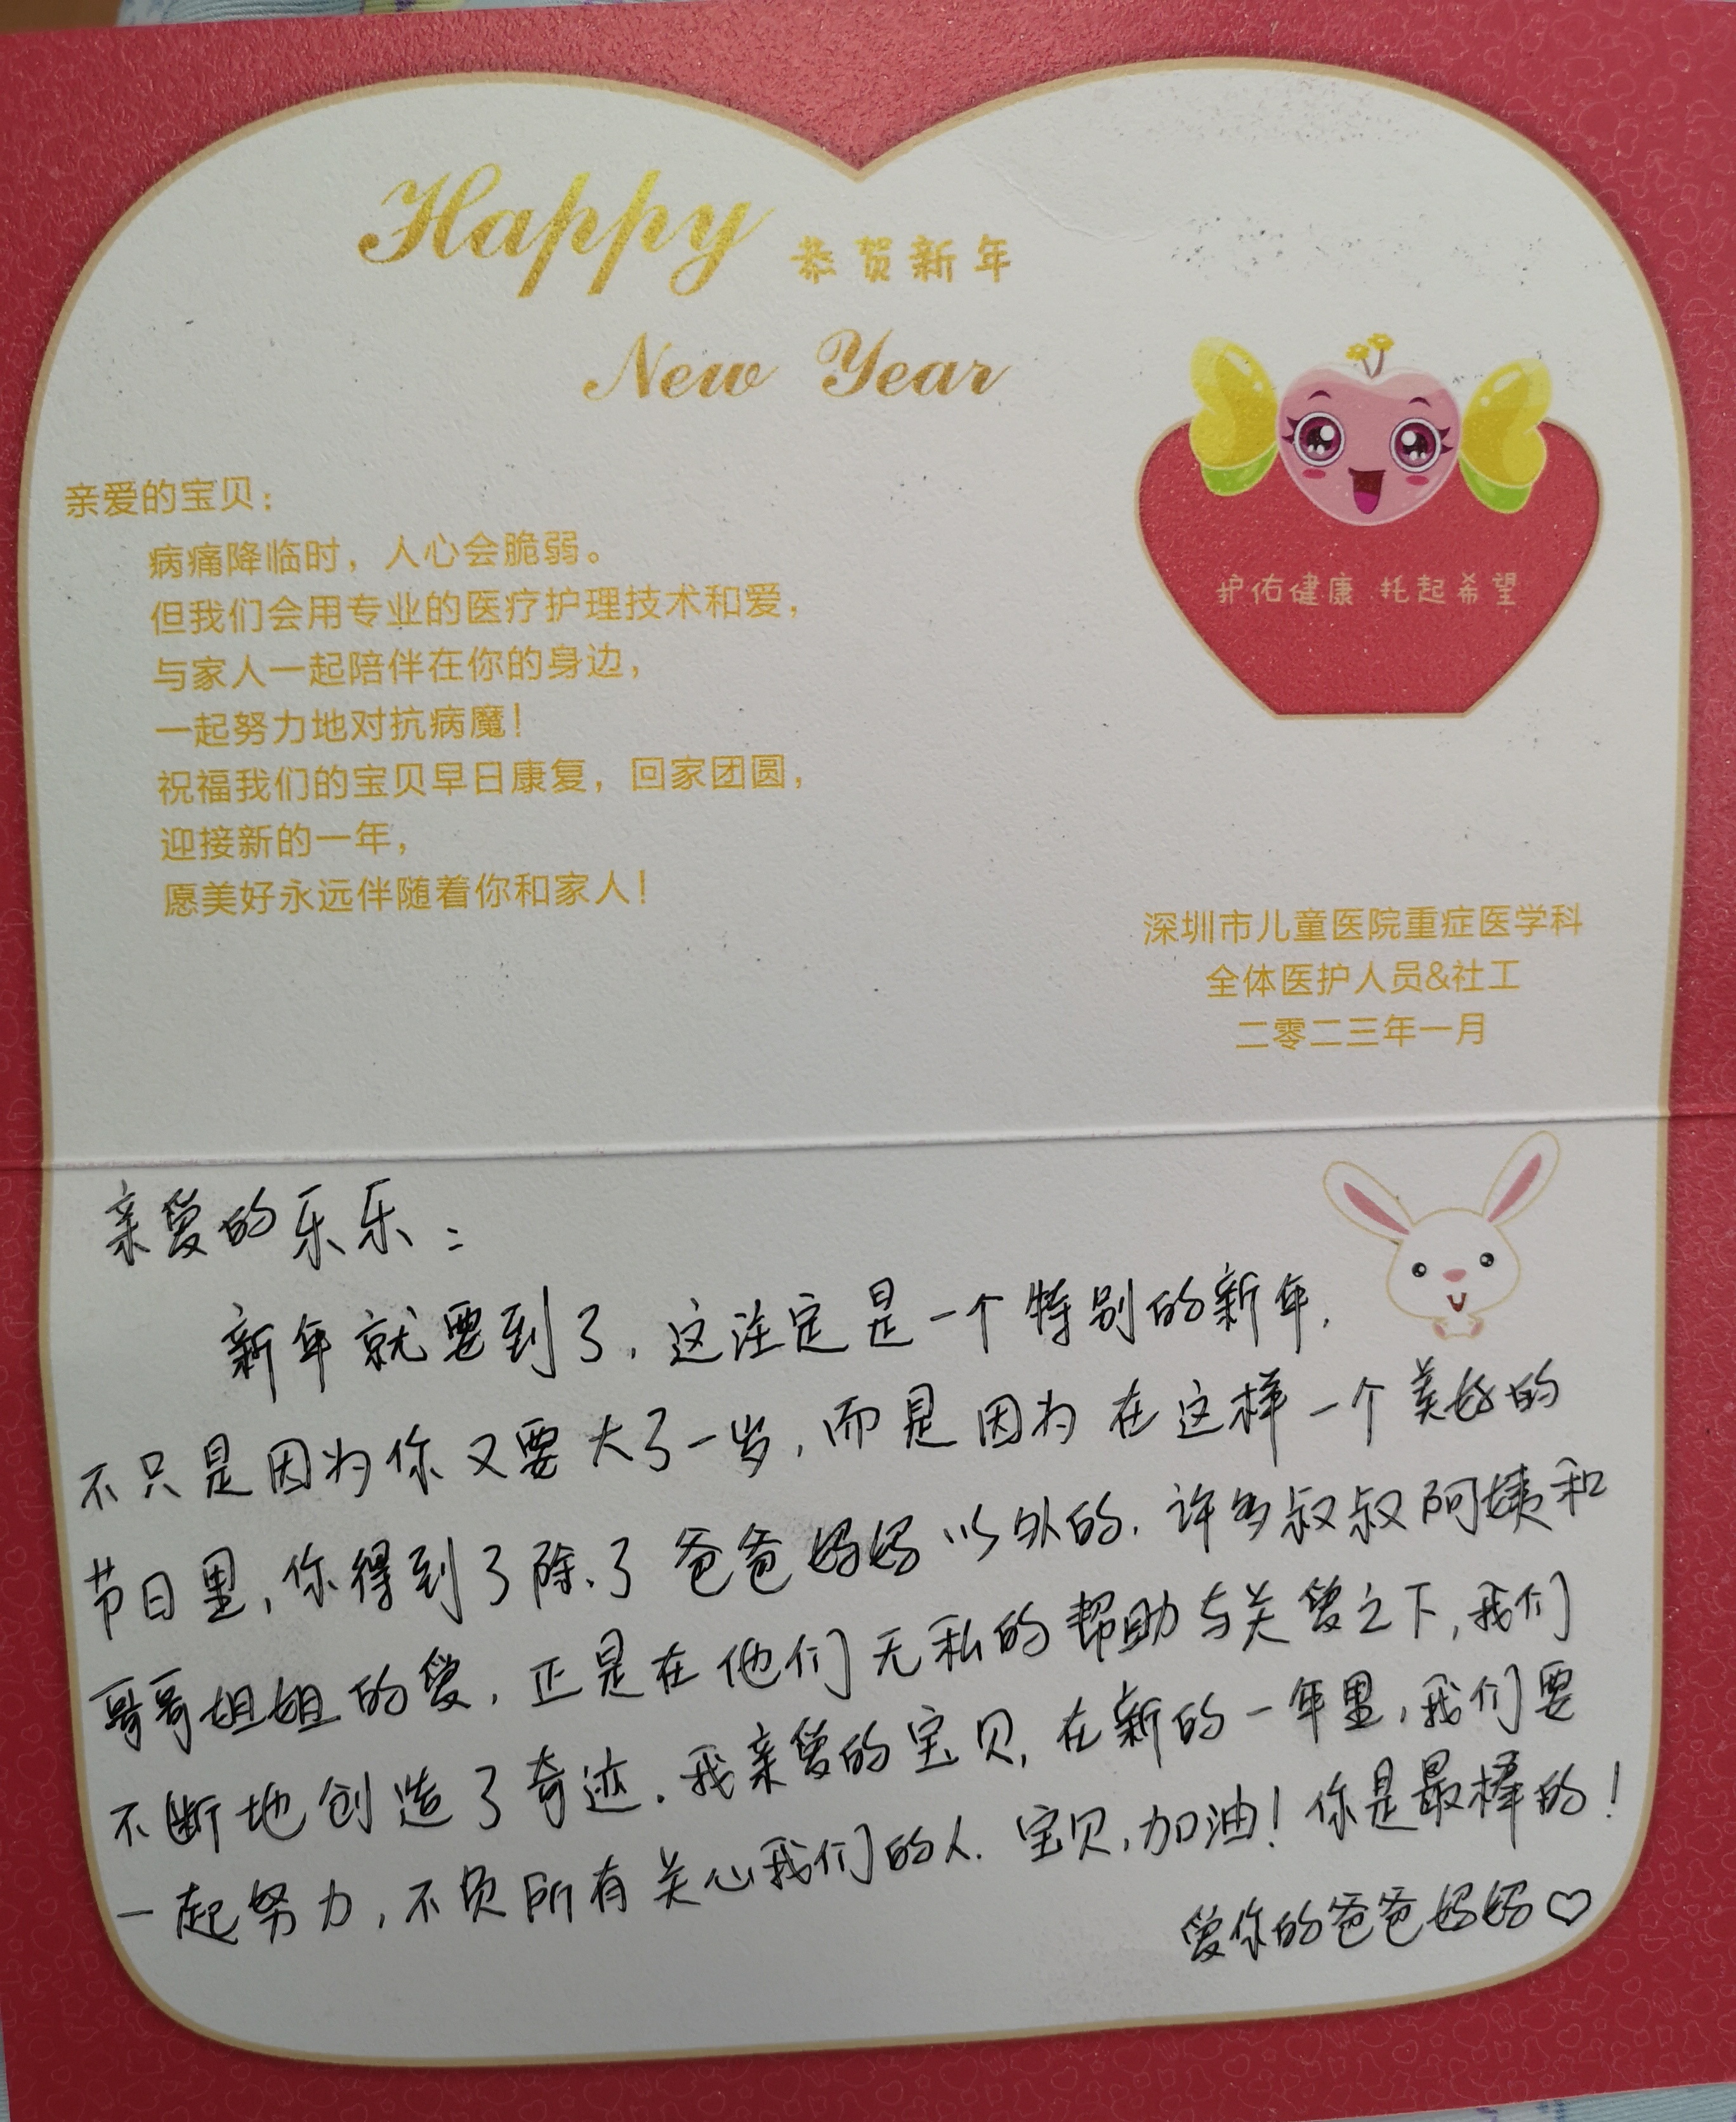 Happy 恭贺新年
New Year
亲爱的宝贝：
病痛降临时，人心会脆弱。
但我们会用专业的医疗护理技术和爱，
与家人一起陪伴在你的身边，
一起努力地对抗病魔！
祝福我们的宝贝早日康复，回家团圆，
迎接新的一年，
愿美好永远伴随着你和家人！
护佑健康 托起希望
深圳市儿童医院重症医学科
全体医护人员&社工
二零二三年一月
亲爱的乐乐：
新年就要到了，这注定是一个特别的新年，
不只是因为你又要大了一岁，而是因为在这样一个美好的
节日里，你得到了除了爸爸妈妈以外的，许多叔叔阿姨和
哥哥姐姐的爱，正是在他们无私的帮助与关爱之下，我们
不断地创造了奇迹。我亲爱的宝贝，在新的一年里，我们要
一起努力，不负所有关心我们的人。宝贝，加油！你是最棒的！
爱你的爸爸妈妈♡